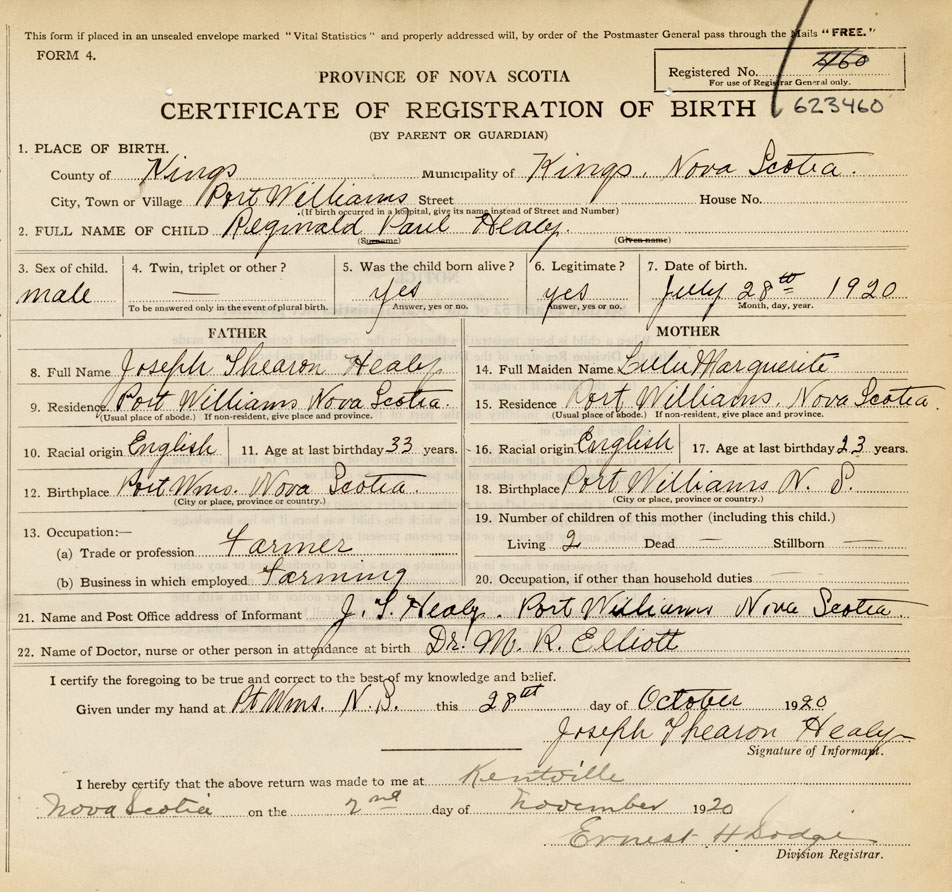 This form if placed in an unsealed envelope marked "Vital Statistics" and properly addressed will, by order of the Postmaster General pass through the Mails "FREE."
FORM 4.
Registered No. 460
For use of Registrar General only.
PROVINCE OF NOVA SCOTIA
CERTIFICATE OF REGISTRATION OF BIRTH 623460
(BY PARENT OR GUARDIAN)
1. PLACE OF BIRTH.
County of Kings Municipality of Kings, Nova Scotia.
City, Town or Village Port Williams Street House No.
(If birth occurred in a hospital, give its name instead of Street and Number)
2. FULL NAME OF CHILD Reginald Paul Healy.
(Surname) (Given name)
3. Sex of child. 4. Twin, triplet or other? 5. Was the child born alive? 6. Legitimate? 7. Date of birth.
male — yes yes July 28th 1920
To be answered only in the event of plural birth. Answer, yes or no. Answer, yes or no. Month, day, year.
FATHER MOTHER
8. Full Name Joseph Shearon Healy 14. Full Maiden Name Lulu Marguerite
9. Residence Port Williams Nova Scotia. 15. Residence Port Williams, Nova Scotia.
(Usual place of abode.) If non-resident, give place and province. (Usual place of abode.) If non-resident, give place and province.
10. Racial origin English 11. Age at last birthday 33 years. 16. Racial origin English 17. Age at last birthday 23 years.
12. Birthplace Port Wms. Nova Scotia. 18. Birthplace Port Williams N. S.
(City or place, province or country.) (City or place, province or country.)
13. Occupation:— 19. Number of children of this mother (including this child.)
(a) Trade or profession Farmer Living 2 Dead — Stillborn —
(b) Business in which employed Farming 20. Occupation, if other than household duties —
21. Name and Post Office address of Informant J. S. Healy. Port Williams Nova Scotia.
22. Name of Doctor, nurse or other person in attendance at birth Dr. M. R. Elliott
I certify the foregoing to be true and correct to the best of my knowledge and belief.
Given under my hand at Pt Wms. N.S. this 28th day of October 1920
Joseph Shearon Healy
Signature of Informant.
I hereby certify that the above return was made to me at Kentville
Nova Scotia on the 2nd day of November 1920
Ernest H Dodge
Division Registrar.